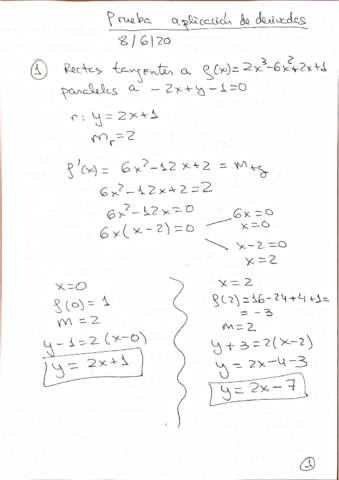 Prueba aplicación de derivadas
8/6/20
① Rectas tangentes a f(x)=2x³-6x²+2x+1
paralelas a -2x+y-1=0
r: y=2x+1
mᵣ=2
f'(x)= 6x²-12x+2 = m+g
6x²-12x+2=2
6x²-12x=0
6x(x-2)=0
6x=0
x=0
x-2=0
x=2
x=0
f(0)=1
m=2
y-1=2(x-0)
y=2x+1
x=2
f(2)=16-24+4+1=
=-3
m=2
y+3=2(x-2)
y=2x-4-3
y=2x-7
①